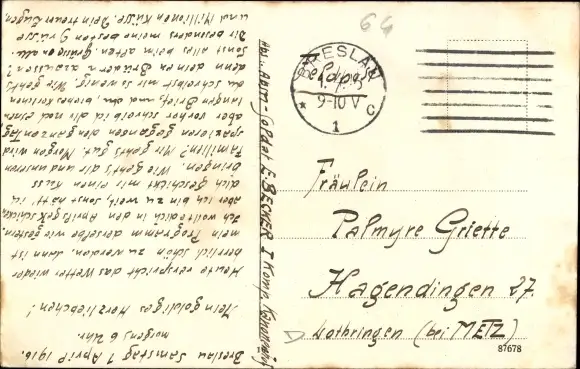 Breslau Samstag 1 April 1916.
morgens 6 Uhr.
Mein goldiges Herzliebchen!
Heute verspricht das Wetter wieder
herrlich schön zu werden, dann ist
mein Programm derselbe wie gestern.
Ich wollte dich in den April schicken
aber ich bin zu weit, sonst hätt' ich
dich geschickt mir einen Kuss
bringen. Wie geht's dir und unseren
Familien? Mir geht's gut. Morgen wird
spazieren gegangen den ganzen Tag
aber vorher schreib ich dir noch einen
langen Brief, und du, böses Kerlchen
du schreibst mir so wenig. Wie geht's
denn deinen Brüdern
Sonst alles beim alten. Grüsse an alle.
Dir besonders meine besten Grüsse
und Millionen Küsse. Dein treuer Eugen.
Abs. Soldat E. BECKER I Komp.
64
BRESLAU
Feldpost
9-10 V
* 1 c
Fräulein
Palmyre Griette
Hagendingen 27.
Lothringen (bei METZ)
87678